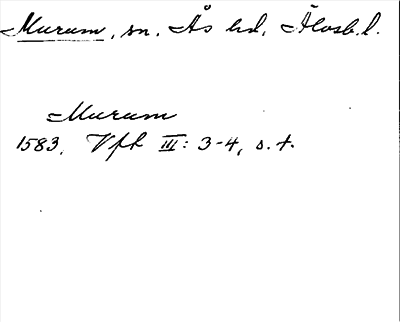 Murum, sn. Ås hd, Älvsb. l.
Murum
1583. Vfh III: 3-4, o. t.